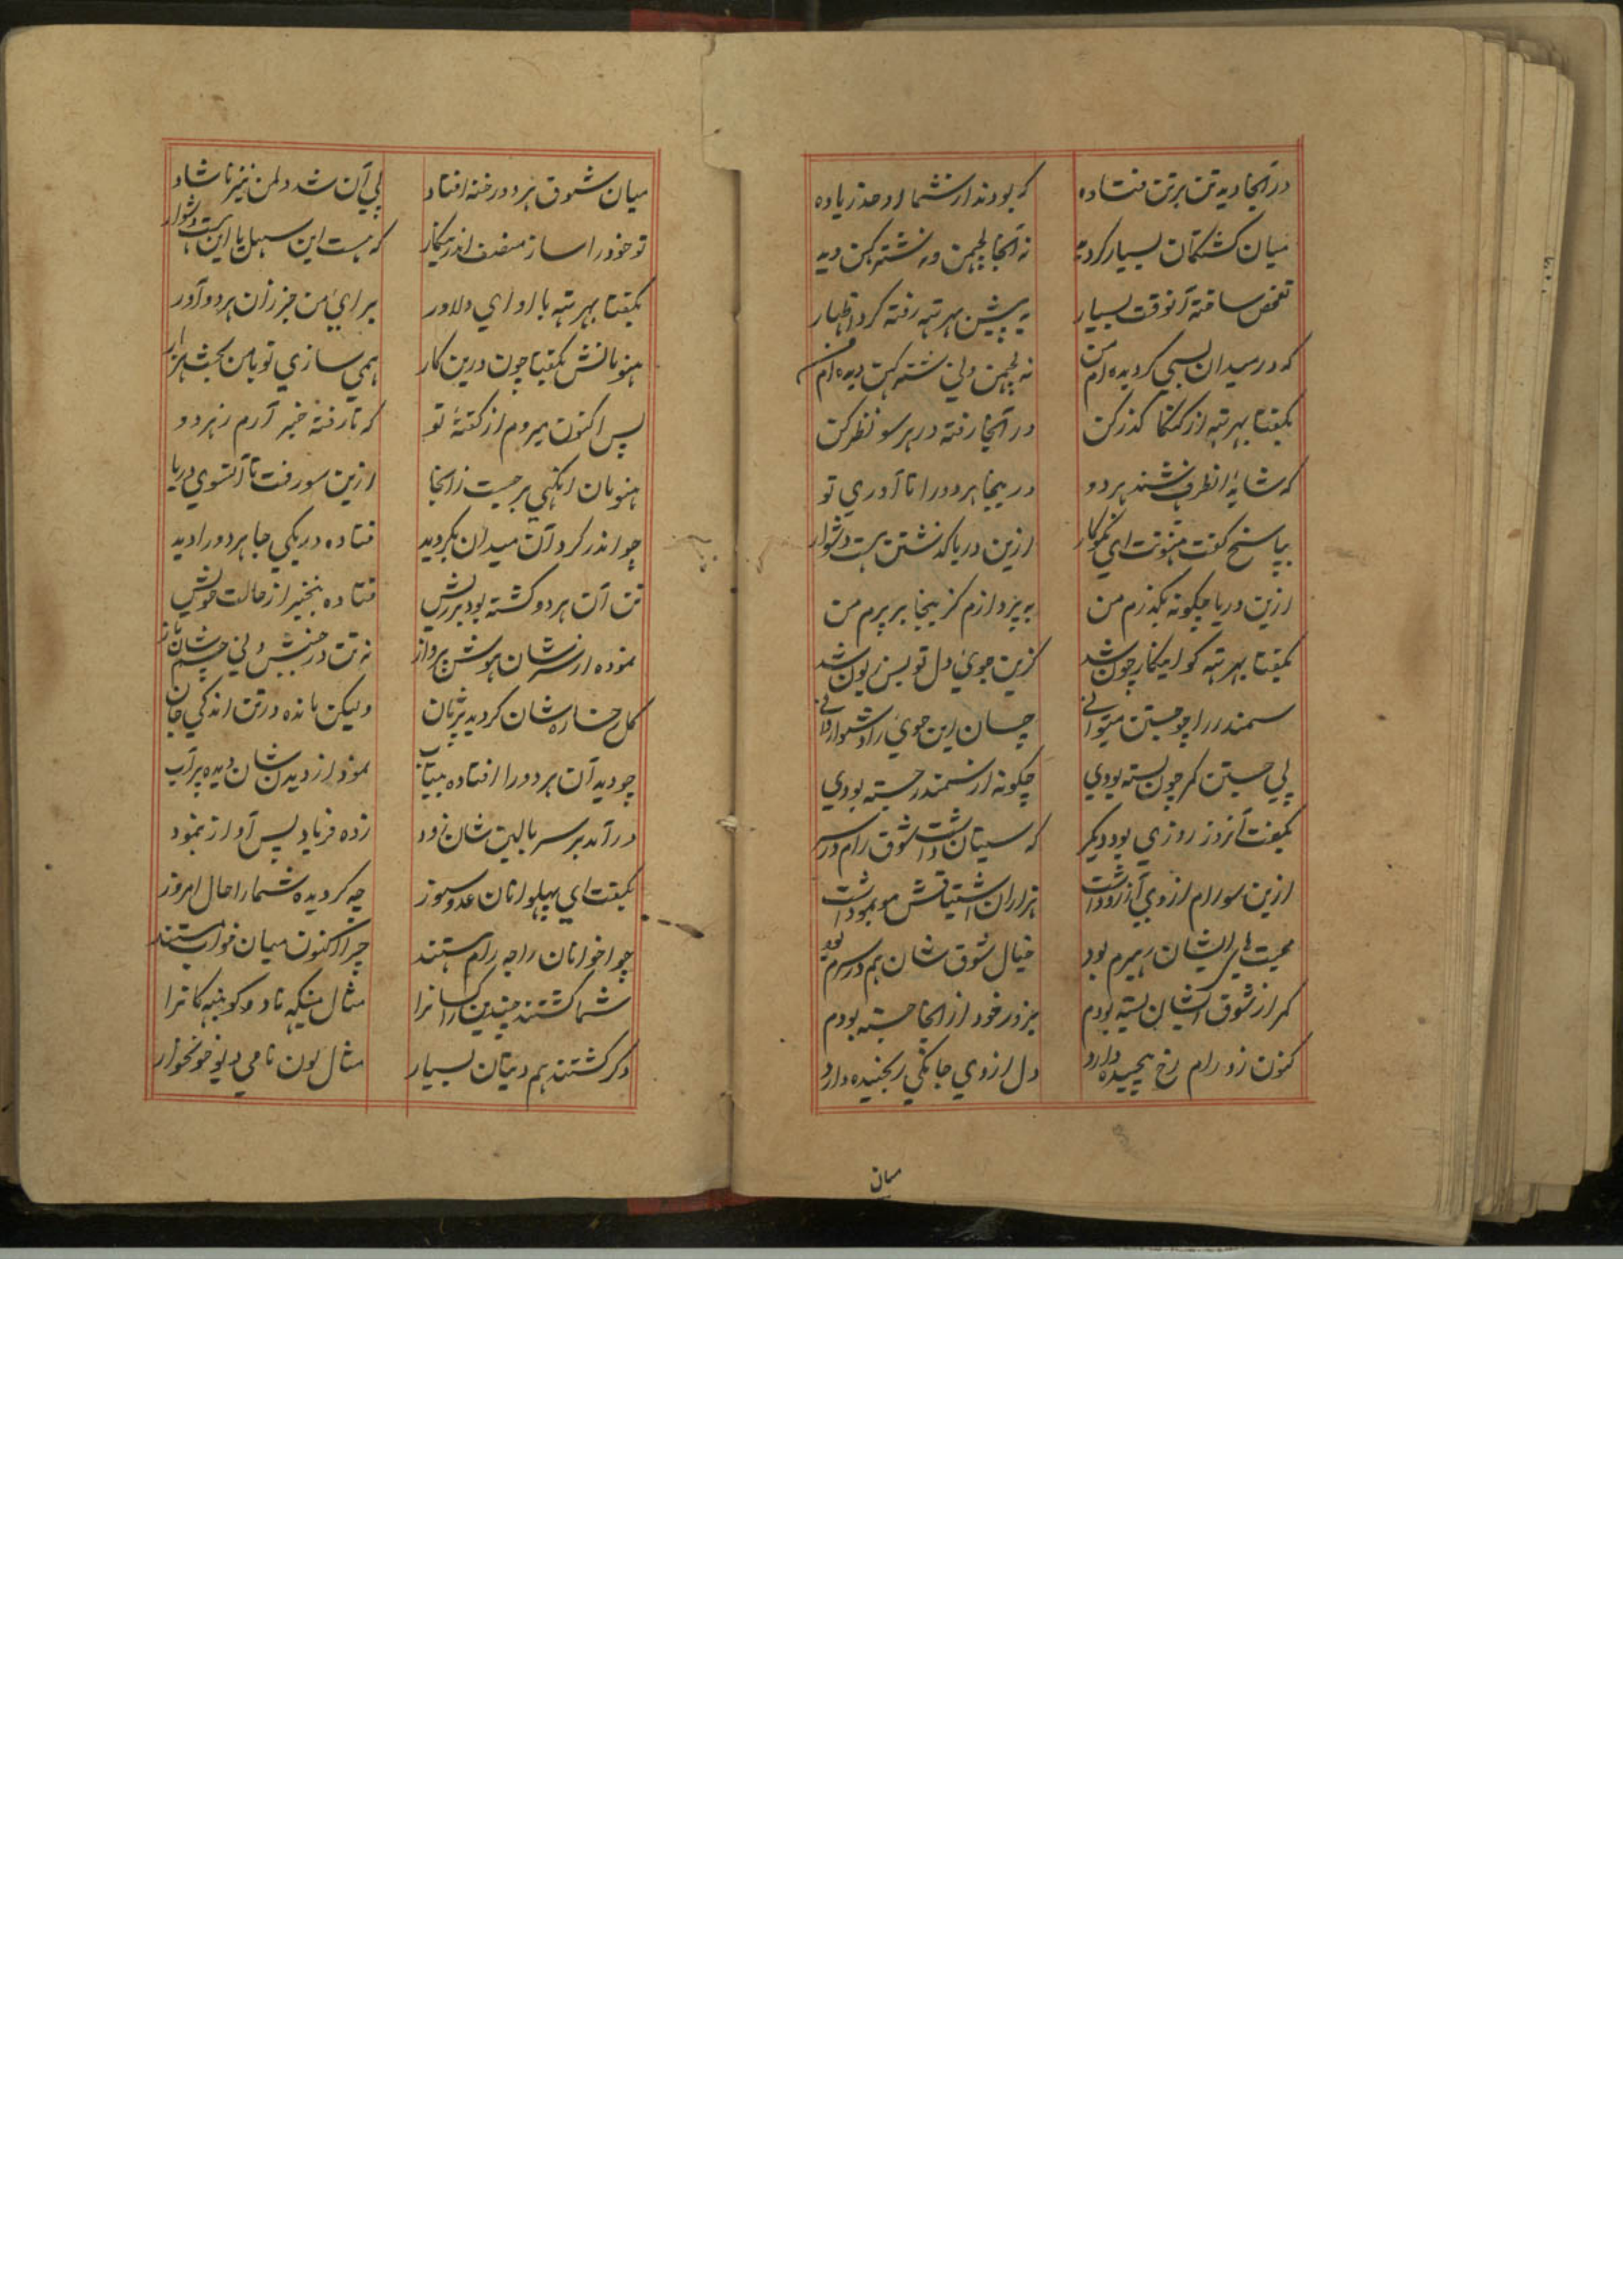 در آنجا دیه تن بر تن فتاده که بودند از شمار و حد زیاده
میان کشتکان بسیار کردید نه آنجا لچهمن و نه شترکهن دید
تفحص ساخته آنوقت بسیار به پیش بهرتهه رفته کرد اظهار
که در میدان بسی کردیده‌ام من نه لچهمن ولی شترکهن دیده‌ام من
بکفتا بهرتهه از کنکا کذر کن در آنجا رفته در هر سو نظر کن
که شاید آنطرف باشند هر دو در ینجا هر دو را تا آوری تو
بپاسخ کفت هنونت ای نکوکار ازین دریا کذشتن هست دشوار
ازین دریا چکونه بکذرم من به پردازم کز ینجا بر پرم من
بکفتا بهرتهه کو اینکار چون شد کزین جوی دل تو بس زبون شد
سمندر را چو جستن میتوانی چسان این جوی را دشوار دانی
پی جستن کمر چون بسته بودی چکونه از سمندر جسته بودی
بکفت آنروز روزی بود دیکر که سیتا داشت شوق رام در سر
ازین سو رام از وی آرزو داشت هزاران اشتیاقش مو بمو داشت
محبت‌های ایشان رهبرم بود خیال شوق شان هم در سرم بود
کمر از شوق ایشان بسته بودم بزور خود از آنجا جسته بودم
کنون زو رام رخ پیچیده دارد دل از وی جانکی رنجیده دارد
میان
میان شوق هر دو رخنه افتاد پی آن شد دلمن نیز ناشاد
تو خود را ساز منصف اندرینکار که هست این سهل یا این هست دشوار
بکفتا بهرتهه با او ای دلاور برای من خبر زان هر دو آور
هنومانش بکفتا چون درین کار همی سازی تو با من بحث بسیار
پس اکنون میروم از کفتهٔ تو که تا رفته خبر آرم ز هر دو
هنومان انکهی برجست زانجا ازین سو رفت تا آنسوی دریا
چو اندر کرد آن میدان بکردید فتاده در یکی جا هر دو را دید
تن آن هر دو کشته بود پر ریش فتاده بیخبر از حالت خویش
نموده از سر شان هوش پرواز نه تن در جنبش ولی چشم شان باز
کل رخساره شان کردید پژمان ولیکن مانده در تن اندکی جان
چو دید آن هر دو را افتاده بیتاب نمود از دیدن شان دیده پرآب
در آمد بر سر بالین شان زود زده فریاد پس آواز بنمود
بکفت ای پهلوانان عدوسوز چه کردیده شما را حال امروز
چو اخوانان راجه رام هستند چرا اکنون میان خواب هستند
شما کشتند چندین راکسانرا مثال میکهه ناد و کونبهه کانرا
دکر کشتند هم دیتان بسیار مثال لون نامی دیو خونخوار